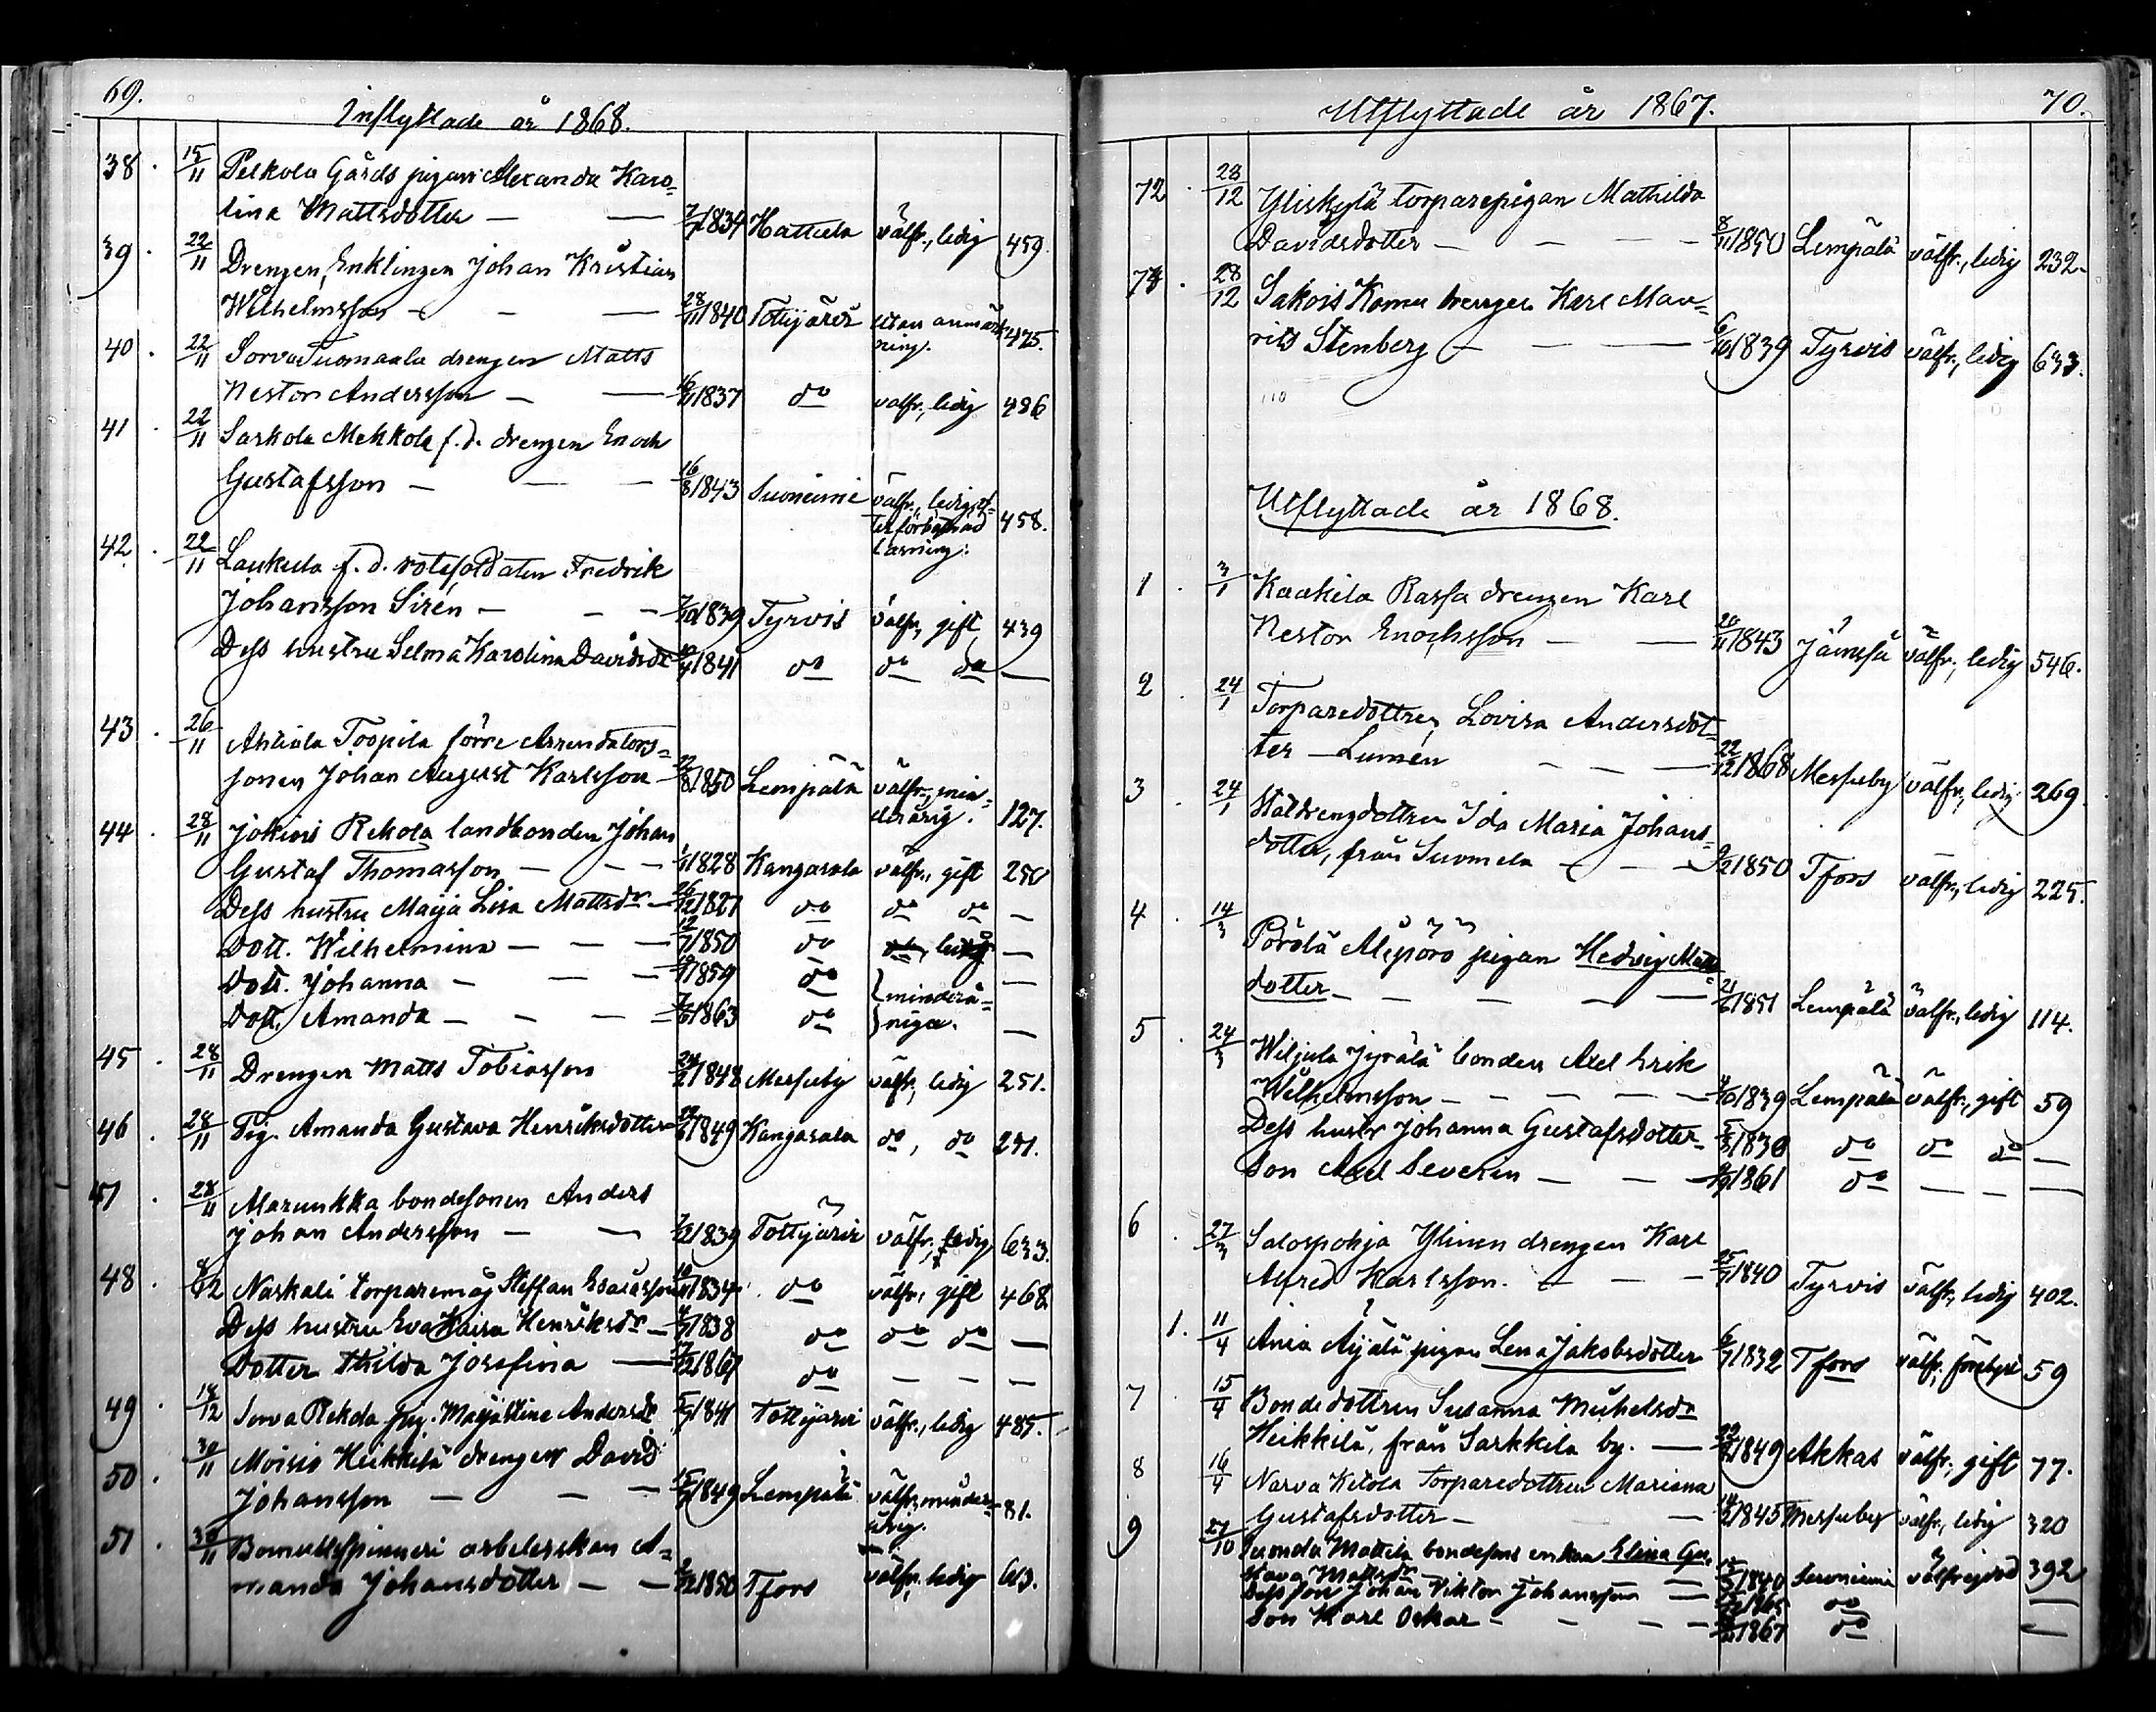 69.
Inflyttade år 1868.
38 . 15/11 Pelkola Gårds pigan Alexandra Karo-
lina Mattsdotter — — 1834 Hattula välfr., ledig 459.
39 . 22/11 Drengen, Enklingen Johan Kristian
Wilhelmsson — — — 28/11 1840 Tottijärvi utan anmärk- 475.
ning.
40 . 22/11 Sorva Tuomaala drengen Matts
Nestor Andersson — — 1837 do välfr., ledig 486
41 . 22/11 Sarkola Mekkola f.d. drengen Enoch
Gustafsson — — — 16/8 1843 Suoniemi välfr., ledig, ef-
ter förbättrad 458.
läsning.
42. . 22/11 Laukula f.d. rotesoldaten Fredrik
Johansson Sirén — — — 1839 Tyrvis välfr., gift 439
Dess hustru Selma Karolina Davidsdr 1841 do do do —
43 . 26/11 Ahtiala Toopila förre Arrendators-
sonen Johan August Karlsson — 1850 Lempälä välfr., min-
derårig. 127.
44 . 28/11 Jokivis Rekola landbonden Johan
Gustaf Thomasson — — — 1828 Kangasala välfr., gift 250
Dess hustru Maija Lisa Mattsdr — 1827 do do do —
Dott. Wilhelmina — — — 1850 do ledig —
Dott. Johanna — — — 1859 do } minderå- —
Dott. Amanda — — — 1863 do } riga. —
45 . 28/11 Drengen Matts Tobiasson 1848 Messuby välfr., ledig 251.
46 . 28/11 Pig. Amanda Gustava Henriksdotter 1849 Kangasala do, do 251.
47 . 28/11 Marunkka bondesonen Anders
Johan Andersson — — 1839 Tottijärvi välfr., ledig 633.
48 . 8/12 Naskali torparemåg Steffan Esaiasson 1834 do välfr., gift 468
Dess hustru Eva Kaisa Henriksdr — 1838 do do do —
Dotter Hilda Josefina — 1867 do — — —
49 . 18/12 Sorva Rekola pig. Maija Stina Andersdr 1841 Tottijärvi välfr., ledig 485.
50 . 30/11 Moisio Heikkilä drengen David
Johansson — — — 1849 Lempälä välfr., minder- 81.
årig.
51 . 30/11 Bomullsspinneri arbeterskan A-
manda Johansdotter — — 1850 Tfors välfr., ledig 613.
Utflyttade år 1867.
70.
72 . 28/12 Yliskylä torparepigan Mathilda
Davidsdotter — — — 8/11 1850 Lempälä välfr., ledig 232.
74 . 28/12 Sakois Komu drengen Karl Mau-
rits Stenberg — — — 6/10 1839 Tyrvis välfr., ledig 633.
Utflyttade år 1868.
1 . 3/1 Kaakila Rassa drengen Karl
Nestor Enochsson — — 20/11 1843 Jämsä välfr., ledig 546.
2 . 24/1 Torparedottren Lovisa Andersdot-
ter — Lumén — — — 22/12 1868 Messuby välfr., ledig 269
3 . 24/1 Staldrengdottren Ida Maria Johans-
dotter, från Suomela — — 1850 Tfors välfr., ledig 225.
4 . 14/3 Pörölä Alipörö pigan Hedvig Matts-
dotter — — — — — 21/6 1851 Lempälä välfr., ledig 114.
5 . 24/3 Wiljula Jyrälä bonden Axel Erik
Wilhelmsson — — — — 1839 Lempälä välfr., gift 59
Dess hustr Johanna Gustafsdotter — 1830 do do do —
Son Axel Severin — — — 1861 do — — —
6 . 27/3 Salospohja Ylinen drengen Karl
Alfred Karlsson. — — — 1840 Tyrvis välfr., ledig 402.
1. 11/4 Ania Äijälä pigan Lena Jakobsdotter 1832 Tfors välfr., 59
7 . 15/4 Bondedottren Susanna Michelsdr
Heikkilä, från Sarkkila by. — 1849 Akkas välfr., gift 77.
8 16/4 Narva Ketola torparedottren Mariana
Gustafsdotter — — 1845 Messuby välfr., ledig 320
9 27/10 Suonda Mattila bondesons enkan Elina Gus-
tava Mattsdr — — 1840 Suoniemi 392
Dess son Johan Viktor Johansson — 1865 do —
Son Karl Oskar — — — — 1867 do —